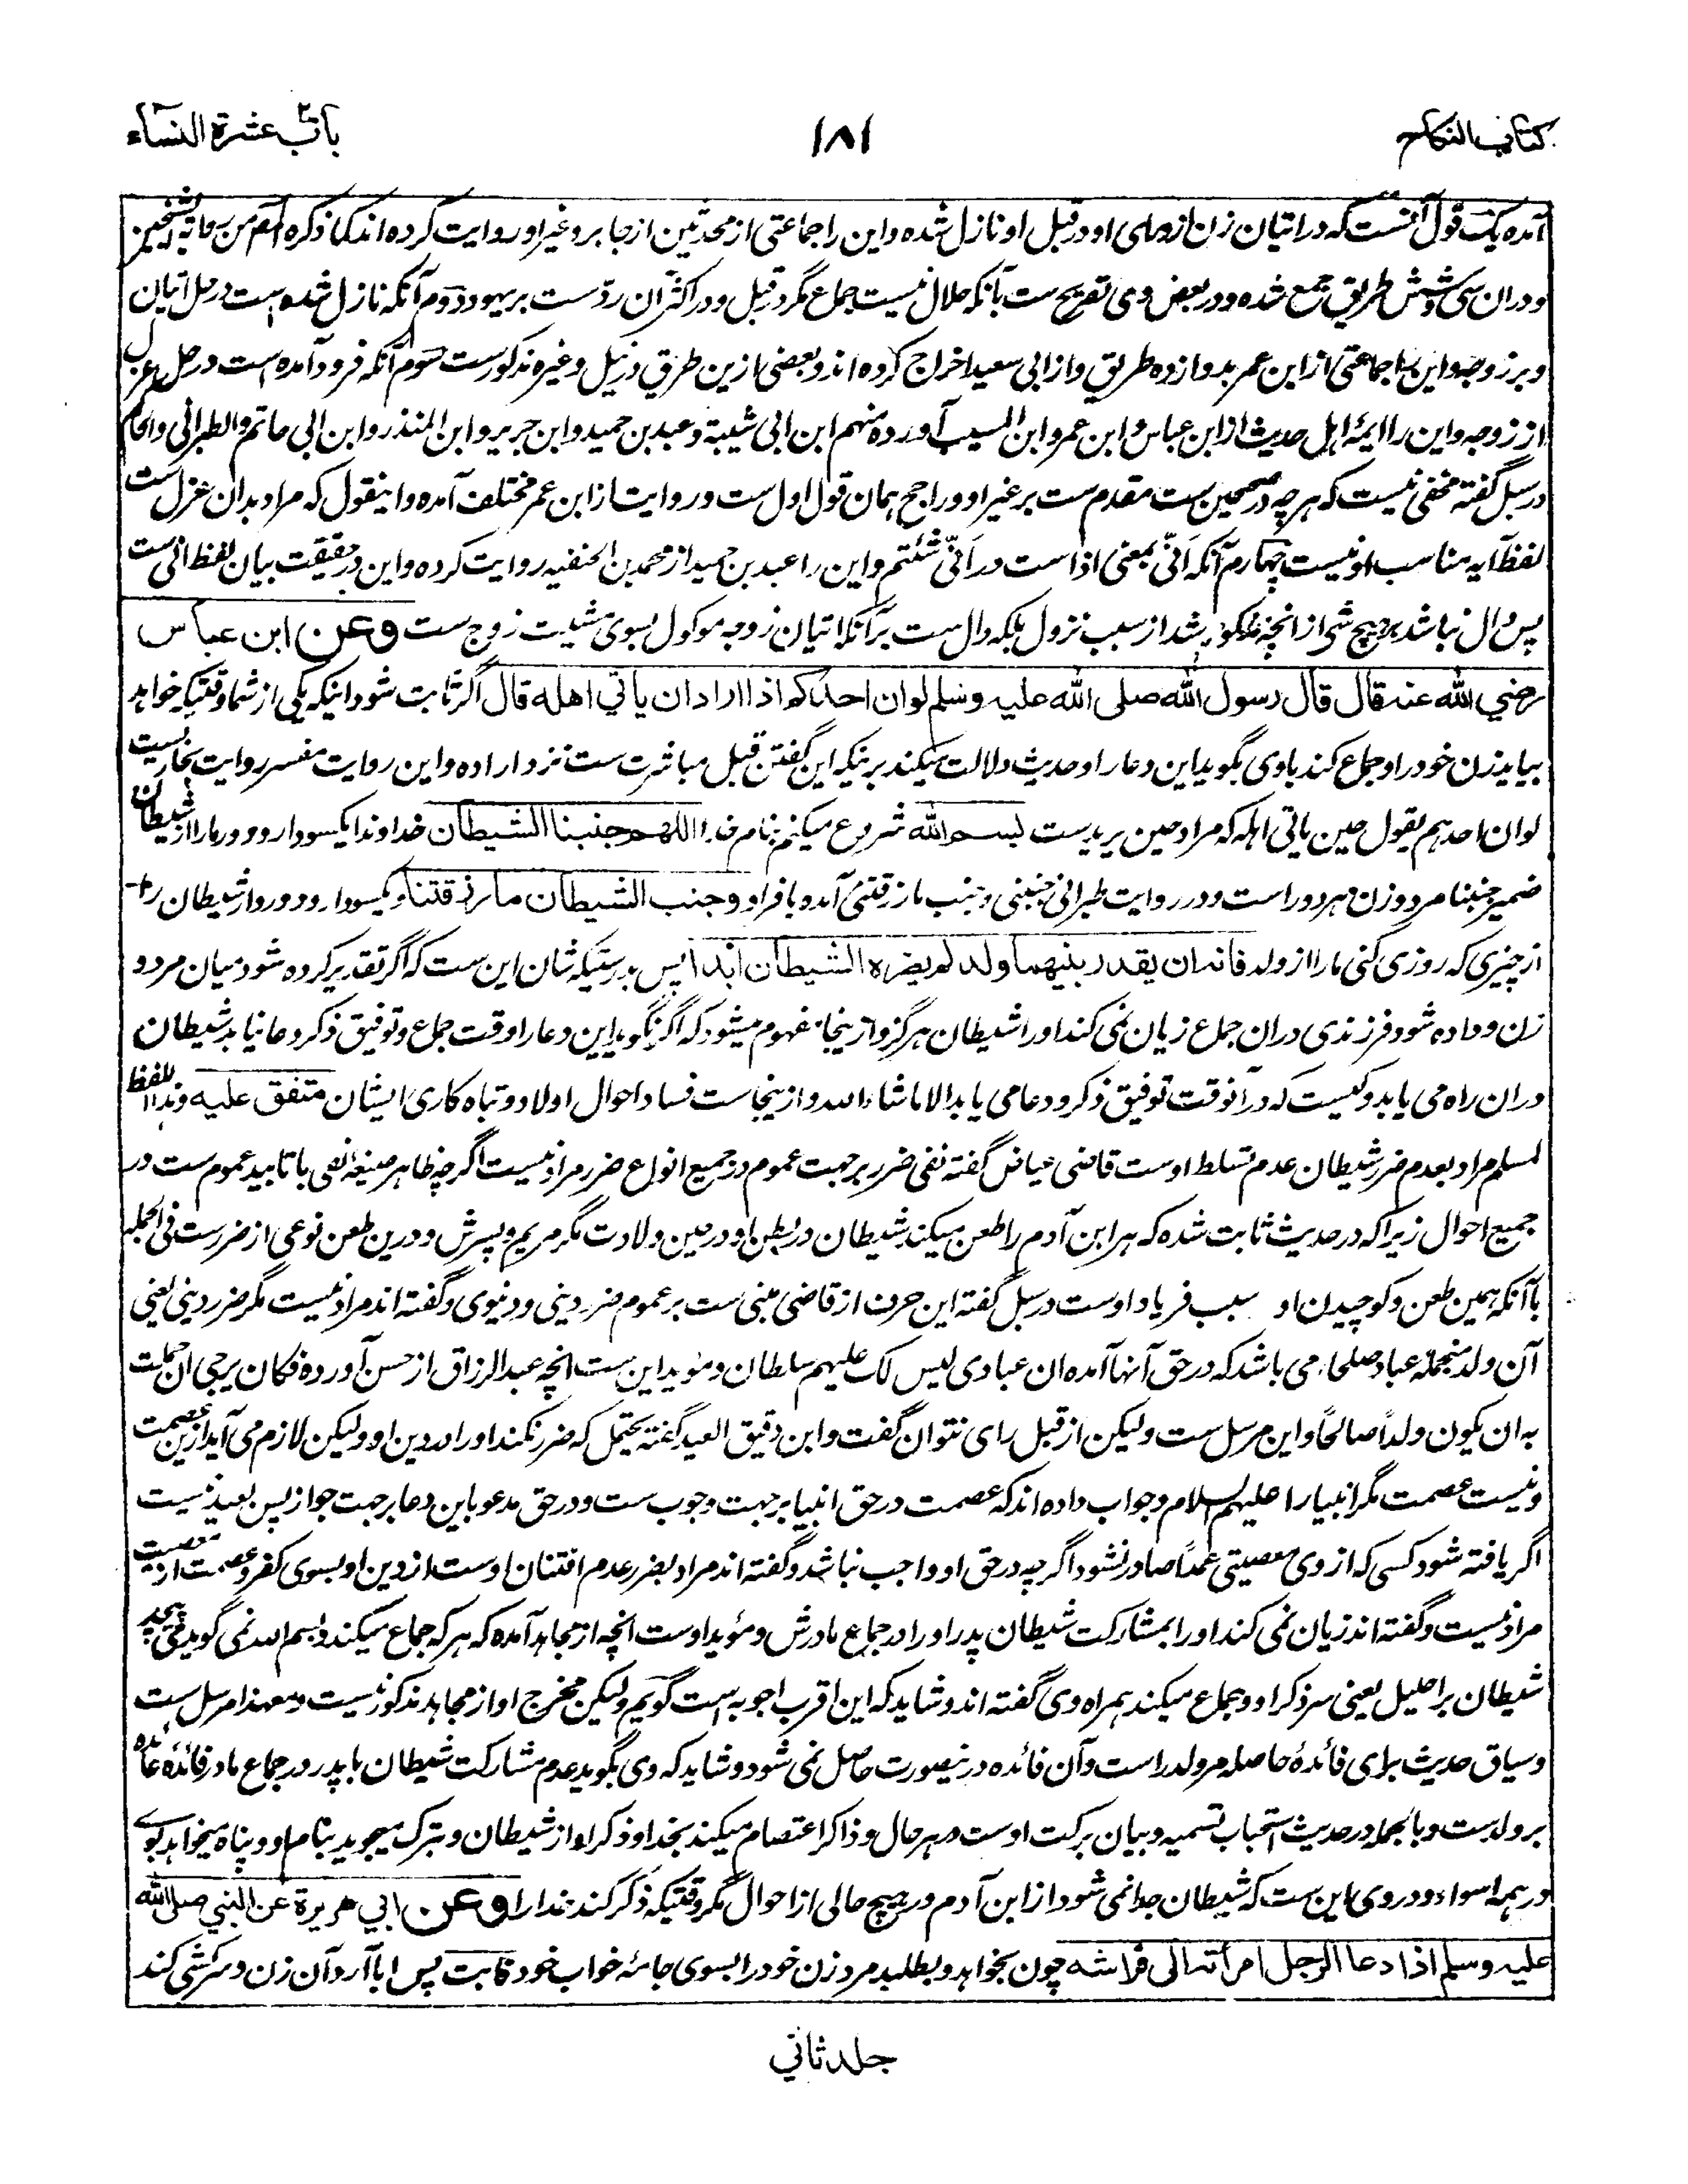 كتاب النكاح
۱۸۱
باب عشرة النساء
آمده یک قول آنست که در اتیان زن از ورای او در قبل او نازل شده و این را جماعتی از محدثین از جابر و غیر او روایت کرده اند کما ذکره المصـ من روایة الشیخین
و دران سی و شش طریق جمع شده و در بعض وی تصریح ست بآنکه حلال نیست جماع مگر در قبل و در اکثر آن ردّ ست بر یهود دوم آنکه نازل شده است در حل اتیان
دبر زوجه و این را جماعتی از ابن عمر بدوازده طریق و از ابی سعید اخراج کرده اند و بعضی ازین طرق در نیل و غیره مذکورست سوم آنکه فرود آمده است در حل عزل
از زوجه و این را ایمۀ اهل حدیث از ابن عباس و ابن عمر و ابن المسیب آورده منهم ابن ابی شیبة و عبد بن حمید و ابن جریر و ابن المنذر و ابن ابی حاتم و الطبرانی و الحاکم
در سبل گفته مخفی نیست که هر چه در صحیحین ست مقدم ست بر غیر او و راجح همان قول اول ست و روایت از ابن عمر مختلف آمده و اینقول که مراد بدان عزل ست
لفظ آیه مناسب او نیست چهارم آنکه اَنّی بمعنی اذا ست در اَنّی شئتم و این را عبد بن حمید از محمد بن الحنفیه روایت کرده و این در حقیقت بیان لفظ انی ست
پس دال نباشد بر هیچ شی از انچه مذکور شد از سبب نزول بلکه دال ست بر آنکه اتیان زوجه موکول بسوی مشیت زوج ست وعن ابن عباس
رضي الله عنه قال قال رسول الله صلى الله عليه وسلم لو ان احدكم اذا اراد ان ياتي اهله قال اگر ثابت شود اینکه یکی از شما وقتیکه خواهد
بیاید زن خود را و جماع کند با وی بگوید این دعا را و حدیث دلالت میکند برینکه این گفتن قبل مباشرت ست نزد اراده و این روایت مفسر روایت بخاریست
لو ان احدهم یقول حین یاتی اهله که مراد حین یرید ست بسم الله شروع میکنم بنام خدا اللهم جنبنا الشيطان خداوندا یکسو دار و دور ما را از شیطان
ضمیر جنبنا مرد و زن هر دو راست و در روایت طبرانی جنبنی و جنب ما رزقتنی آمده بافراد وجنب الشيطان ما رزقتنا و یکسو دار و دور دار شیطان را
از چیزی که روزی کنی ما را از ولد فانه ان يقدر بينهما ولد لم يضره الشيطان ابدا پس بدرستیکه شان این ست که اگر تقدیر کرده شود میان مرد و
زن و داده شود فرزندی دران جماع زیان نمی کند او را شیطان هرگز و ازینجا مفهوم میشود که اگر نگوید این دعا را وقت جماع و توفیق ذکر و دعا نیابد شیطان
دران راه می یابد و کیست که در آنوقت توفیق ذکر و دعا می یابد الا ماشاء الله و ازینجاست فساد احوال اولاد و تباه کاری ایشان متفق عليه وهذا اللفظ
لمسلم مراد بعدم ضرر شیطان عدم تسلط اوست قاضی عیاض گفته نفی ضرر بر جهت عموم در جمیع انواع ضرر مراد نیست اگر چه ظاهر صیغۀ نفی با تابید عموم ست در
جمیع احوال زیراکه در حدیث ثابت شده که هر ابن آدم را طعن میکند شیطان در بطن او در حین ولادت مگر مریم و پسرش و درین طعن نوعی از ضررست فی الجمله
با آنکه همین طعن و کوچیدن او سبب فریاد اوست در سبل گفته این حرف از قاضی مبنی ست بر عموم ضرر دینی و دنیوی و گفته اند مراد نیست مگر ضرر دینی یعنی
آن ولد منجملۀ عباد صلحاء می باشد که در حق آنها آمده ان عبادی لیس لک علیهم سلطان و مؤید این ست انچه عبد الرزاق از حسن آورده فکان یرجی ان حملت
به ان یکون ولداً صالحاً و این مرسل ست و لیکن از قبل رای نتوان گفت و ابن دقیق العید گفته یحتمل که ضرر نکند او را در دین او و لیکن لازم می آید ازین عصمت
و نیست عصمت مگر انبیا را علیهم السلام و جواب داده اند که عصمت در حق انبیا بر جهت وجوب ست و در حق مدعو باین دعا بر جهت جواز پس بعید نیست
اگر یافته شود کسی که از وی معصیتی عمداً صادر نشود اگر چه در حق او واجب نباشد و گفته اند مراد بضرر عدم افتنان اوست از دین او بسوی کفر و عصمت از معصیت
مراد نیست و گفته اند زیان نمی کند او را بمشارکت شیطان پدر او را در جماع مادرش و مؤید اوست انچه از مجاهد آمده که هر که جماع میکند و بسم الله نمی گوید می پیچد
شیطان بر احلیل یعنی سر ذکر او و جماع میکند همراه وی گفته اند و شاید که این اقرب اجوبه است گویم و لیکن مخرج او از مجاهد مذکور نیست و معهذا مرسل ست
و سیاق حدیث برای فائدۀ حاصله مر ولد راست و آن فائده درینصورت حاصل نمی شود و شاید که وی بگوید عدم مشارکت شیطان با پدر در جماع مادر فائدۀ عائده
بر ولدست و بالجمله در حدیث استحباب تسمیه و بیان برکت اوست در هر حال و ذاکر اعتصام میکند بخدا و ذکر او از شیطان و تبرک میجوید بنام او و پناه میخواهد بوی
در همه اسواء و در وی این ست که شیطان جدا نمی شود از ابن آدم در هیچ حالی از احوال مگر وقتیکه ذکر کند خدا را وعن ابي هريرة عن النبي صلى الله
عليه وسلم اذا دعا الرجل امرأته الى فراشه چون بخواهد و بطلبد مرد زن خود را بسوی جامۀ خواب خود فابت پس ابا آرد آن زن و سرکشی کند
جلد ثاني